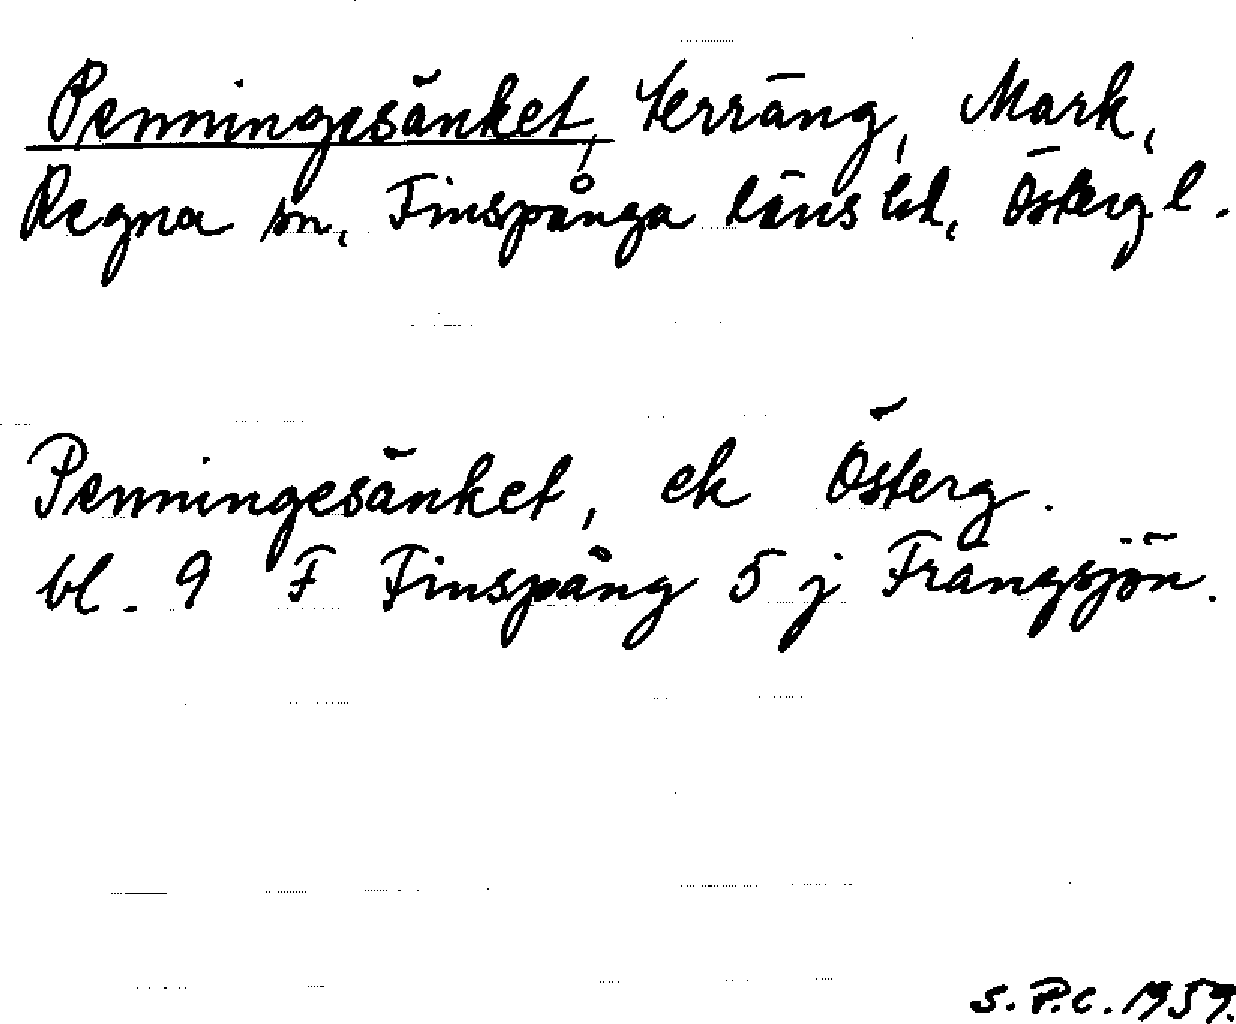 Penningesänket, terräng, Mark,
Regna sn, Finspånga läns hd, Östergl.
Penningesänket, ek Österg.
bl. 9 F Finspång 5 j Frängsjön.
S.P.C. 1959.